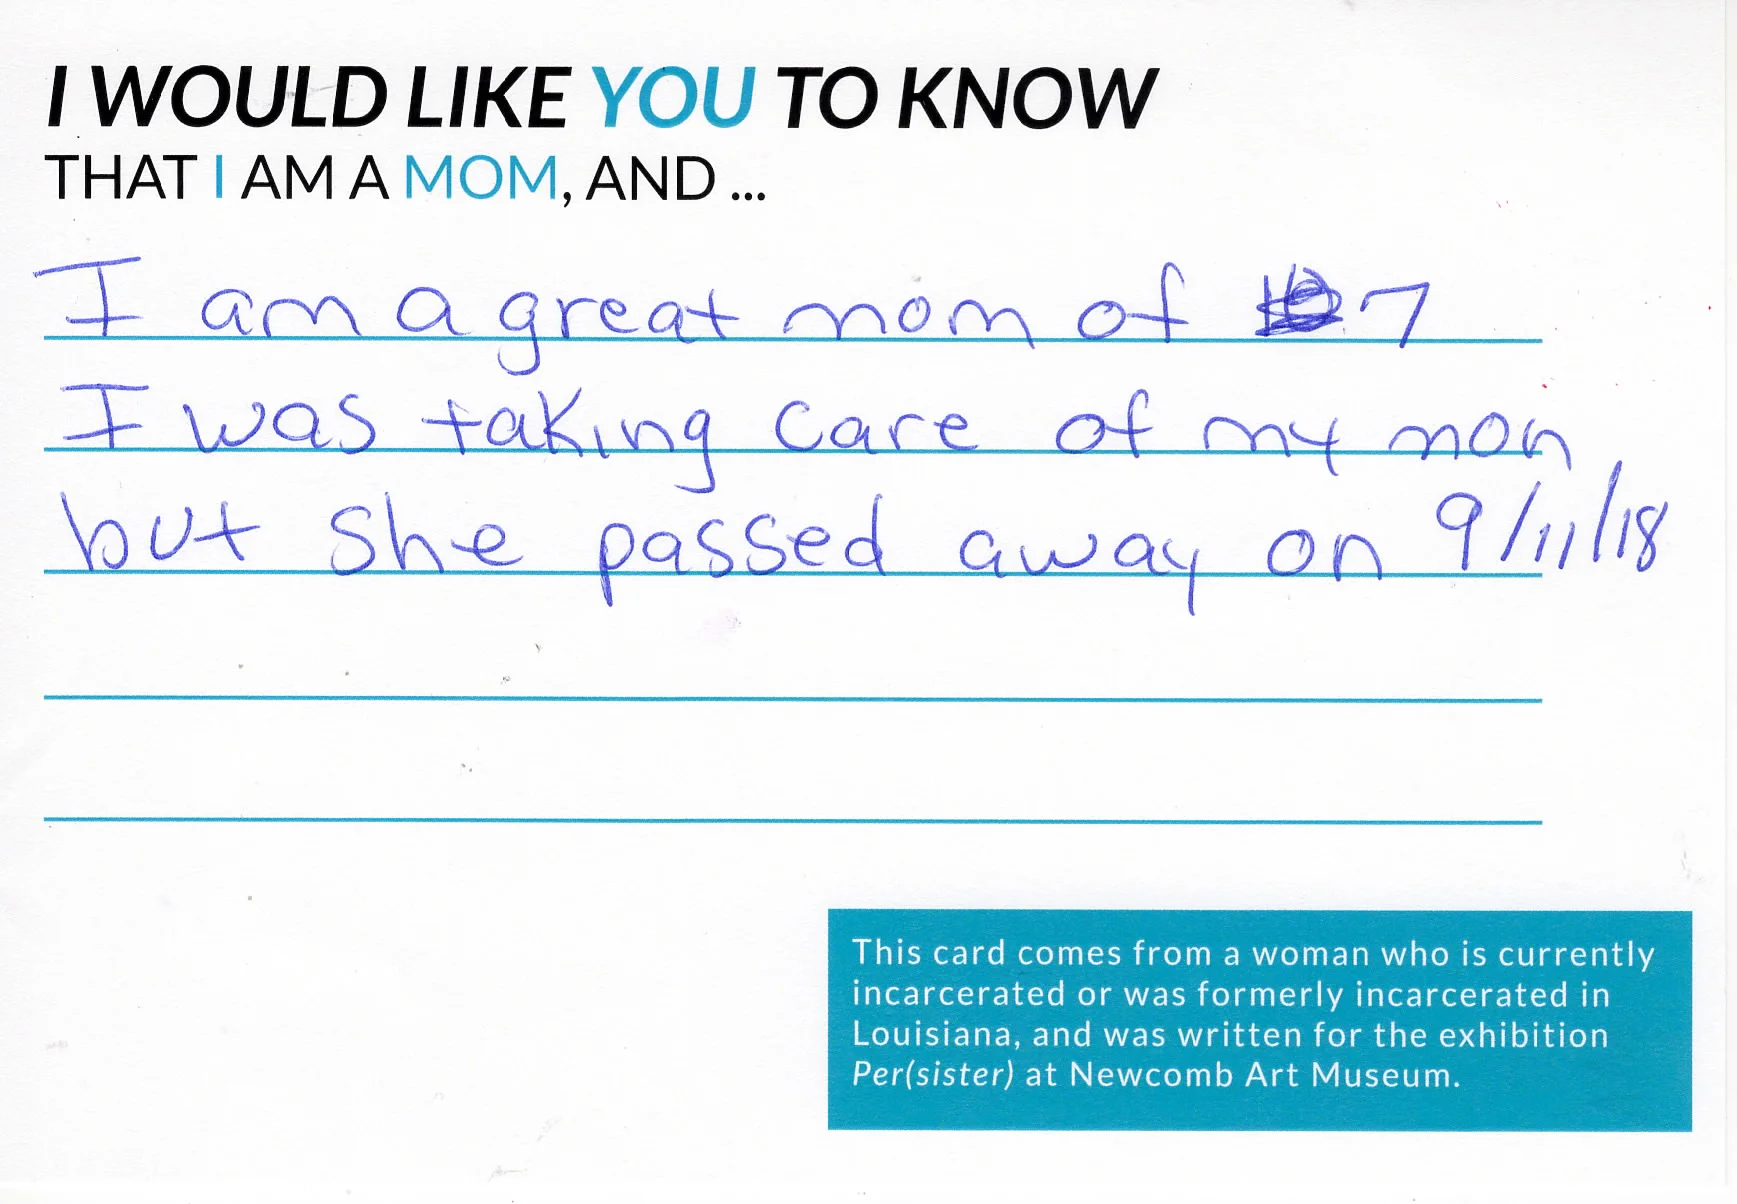 I WOULD LIKE YOU TO KNOW
THAT I AM A MOM, AND ...
I am a great mom of 7
I was taking care of my mom
but she passed away on 9/11/18
This card comes from a woman who is currently
incarcerated or was formerly incarcerated in
Louisiana, and was written for the exhibition
Per(sister) at Newcomb Art Museum.